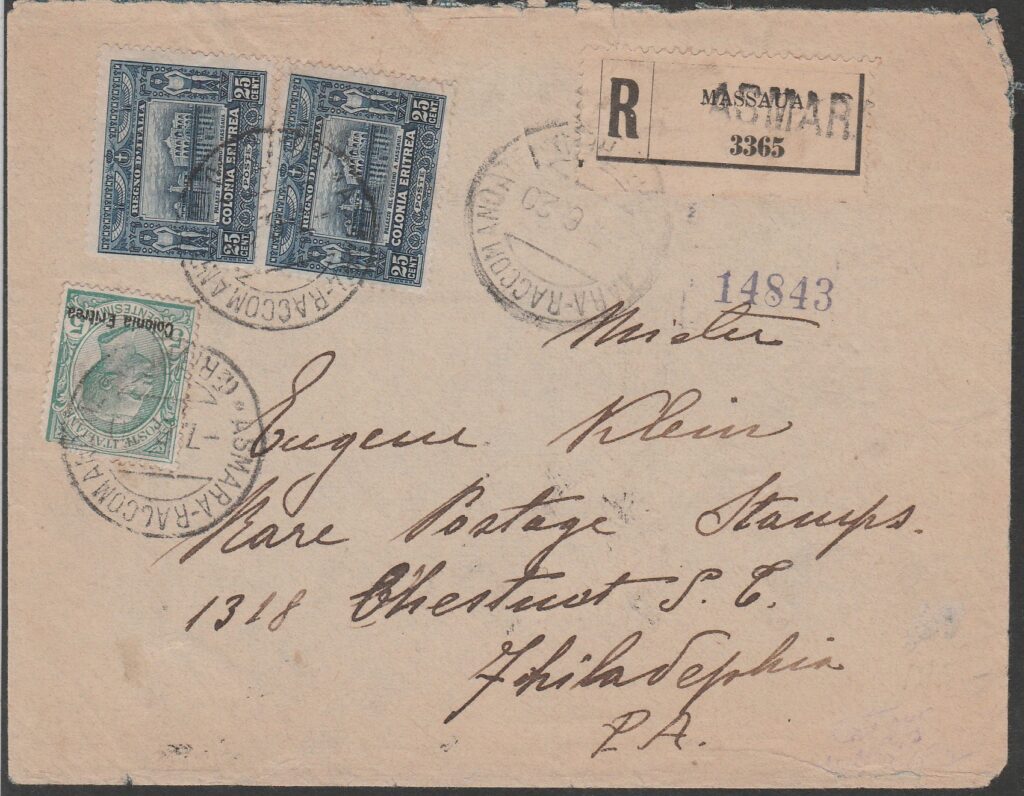 REGNO D'ITALIA
25 CENT.
COLONIA ERITREA
POSTE
25 CENT.
REGNO D'ITALIA
25 CENT.
COLONIA ERITREA
POSTE
25 CENT.
R
MASSAUA
ASMAR
3365
ASMARA-RACCOMAN
6 20
ARA-RACCOMANDA
14843
Colonia Eritrea
CENTESIMI
5
POSTE ITALIANE
ASMARA-RACCOMA
Mister
Eugene Klein
Rare Postage Stamps.
1318 Chestnut S. T.
Philadephia
P.A.